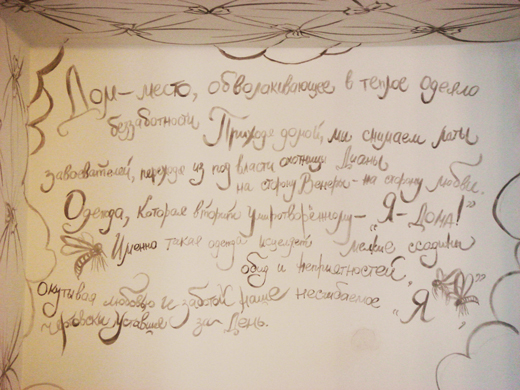 Дом – место, обволакивающее в теплое одеяло
беззаботности Приходя домой, мы снимаем латы
завоевателей, переходя из под власти охотницы Дианы
на сторону Венеры – на сторону любви.
Одежда, которая вторит умиротворённому – "Я – Дома!"
Именно такая одежда исцелит мелкие ссадины
обид и неприятностей,
окутывая любовью и заботой наше несгибаемое "Я"
чертовски уставшее за день.